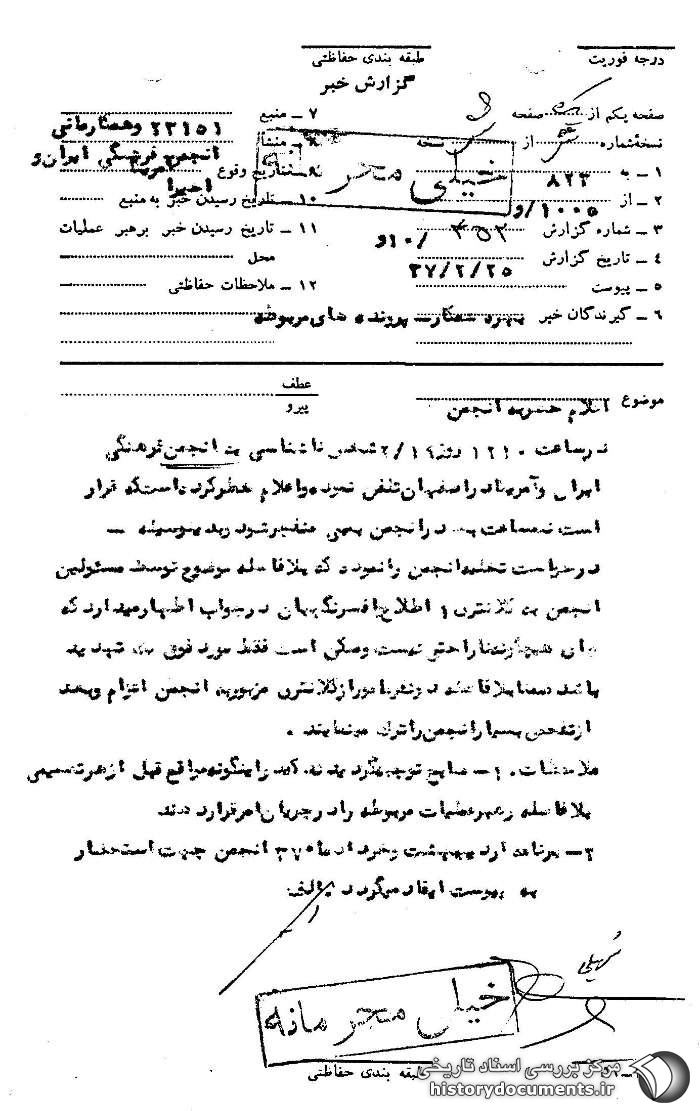 درجه فوریت
طبقه بندی حفاظتی
گزارش خبر
صفحه یکم از صفحه
نسخه شماره از نسخه
۱ – به ۸۲۳
۲ – از ۱۰۰۵/و
۳ – شماره گزارش ۳۵۲/۱۰و
۴ – تاریخ گزارش ۳۷/۲/۲۵
۵ – پیوست
۶ – گیرندگان خبر بهره پرونده های مربوطه
۷ – منبع ۲۳۱۵۱ و همکارمانی
۸ – منشأ انجمن فرهنگی ایران و
۹ – تاریخ وقوع اخیرا
۱۰ – تاریخ رسیدن خبر به منبع
۱۱ – تاریخ رسیدن خبر برهبر عملیات
محل
۱۲ – ملاحظات حفاظتی
خیلی محرمانه
عطف
پیرو
موضوع اعلام انجمن
در ساعت ۱۲۱۰ روز ۲/۱۹ شخص ناشناسی به انجمن فرهنگی
ایران و آمریکا در اصفهان تلفن نموده و اعلام خطر کرده است که قرار
است نیمساعت بعد در انجمن بمبی منفجر شود و بدینوسیله –
درخواست تخلیه انجمن را نموده که بلافاصله موضوع توسط مسئولین
انجمن به کلانتری ۱ اطلاع افسر نگهبان در جواب اظهار میدارد که
جای هیچگونه ناراحتی نیست و ممکن است فقط مورد فوق یک تهدید
باشد ضمنا بلافاصله دو نفر مامور از کلانتری مزبور به انجمن اعزام و بعد
از تفحص بسیار انجمن را ترک مینمایند .
ملاحظات . ۱– منابع توجیه گردیدند که در اینگونه مواقع قبل از هر تصمیمی
بلافاصله رهبر عملیات مربوطه را در جریان امر قرار دهند
۲– برنامه اردیبهشت و خرداد ماه ۳۷ انجمن جهت استحضار
به پیوست ایفاد میگردد
سهیلی
خیلی محرمانه
طبقه بندی حفاظتی
مرکز بررسی اسناد تاریخی
historydocuments.ir